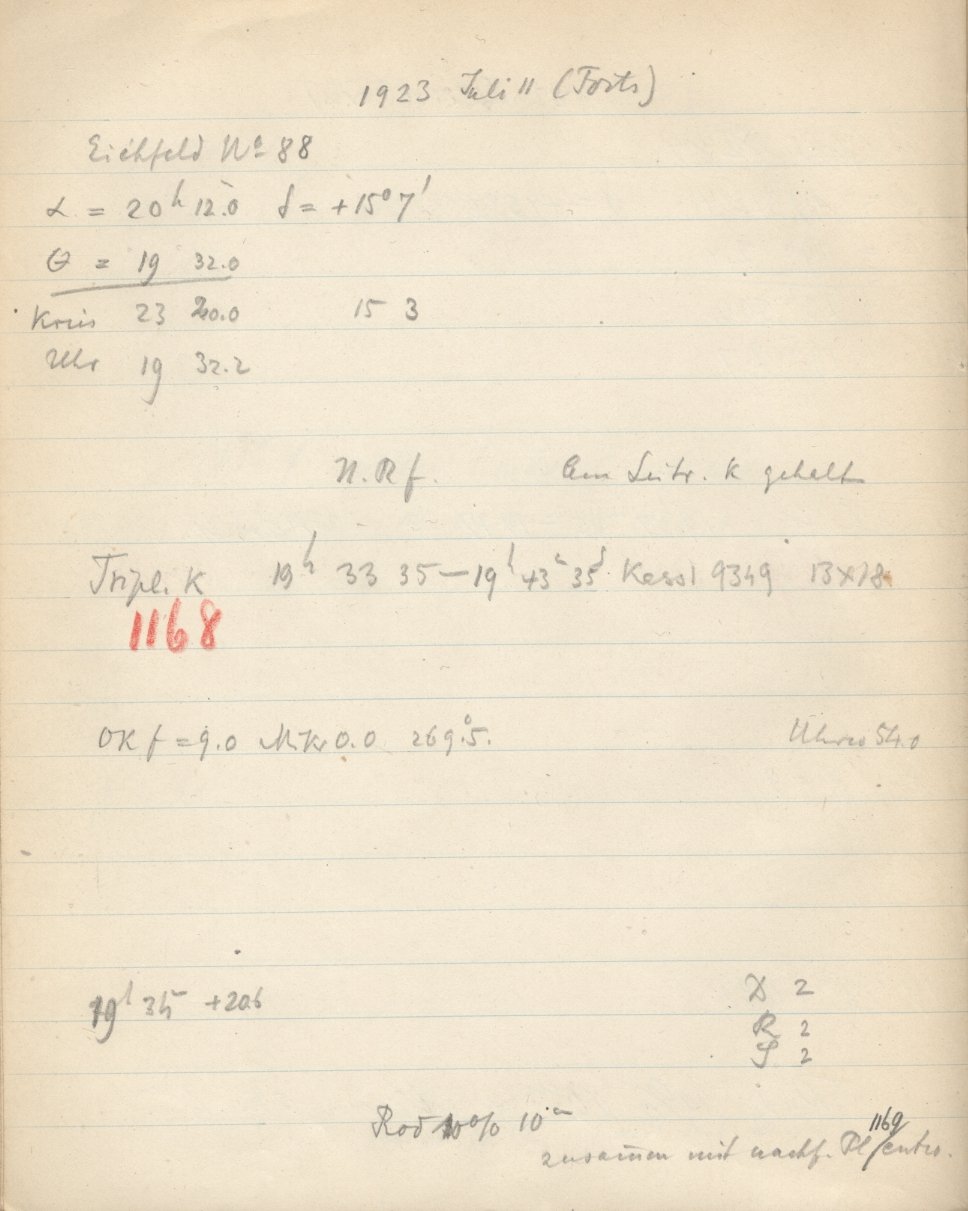 1923 Juli 11 (Forts)
Eichfeld No 88
α = 20h 12.0 δ = +15° 7'
θ = 19 32.0
Kreis 23 20.0 15 3
Uhr 19 32.2
N. R f. Am Leitr. K gehalt
Tripl. K 19h 33 35 — 19h 43m 35s Kassl 9349 13×18
1168
OK f = 9.0 Mikr 0.0 269°.5. 54.0
19h 35m +20.6
D 2
R 2
S 2
Rod 10% 10m
1169
zusam̄en mit nachf. Pl entw.